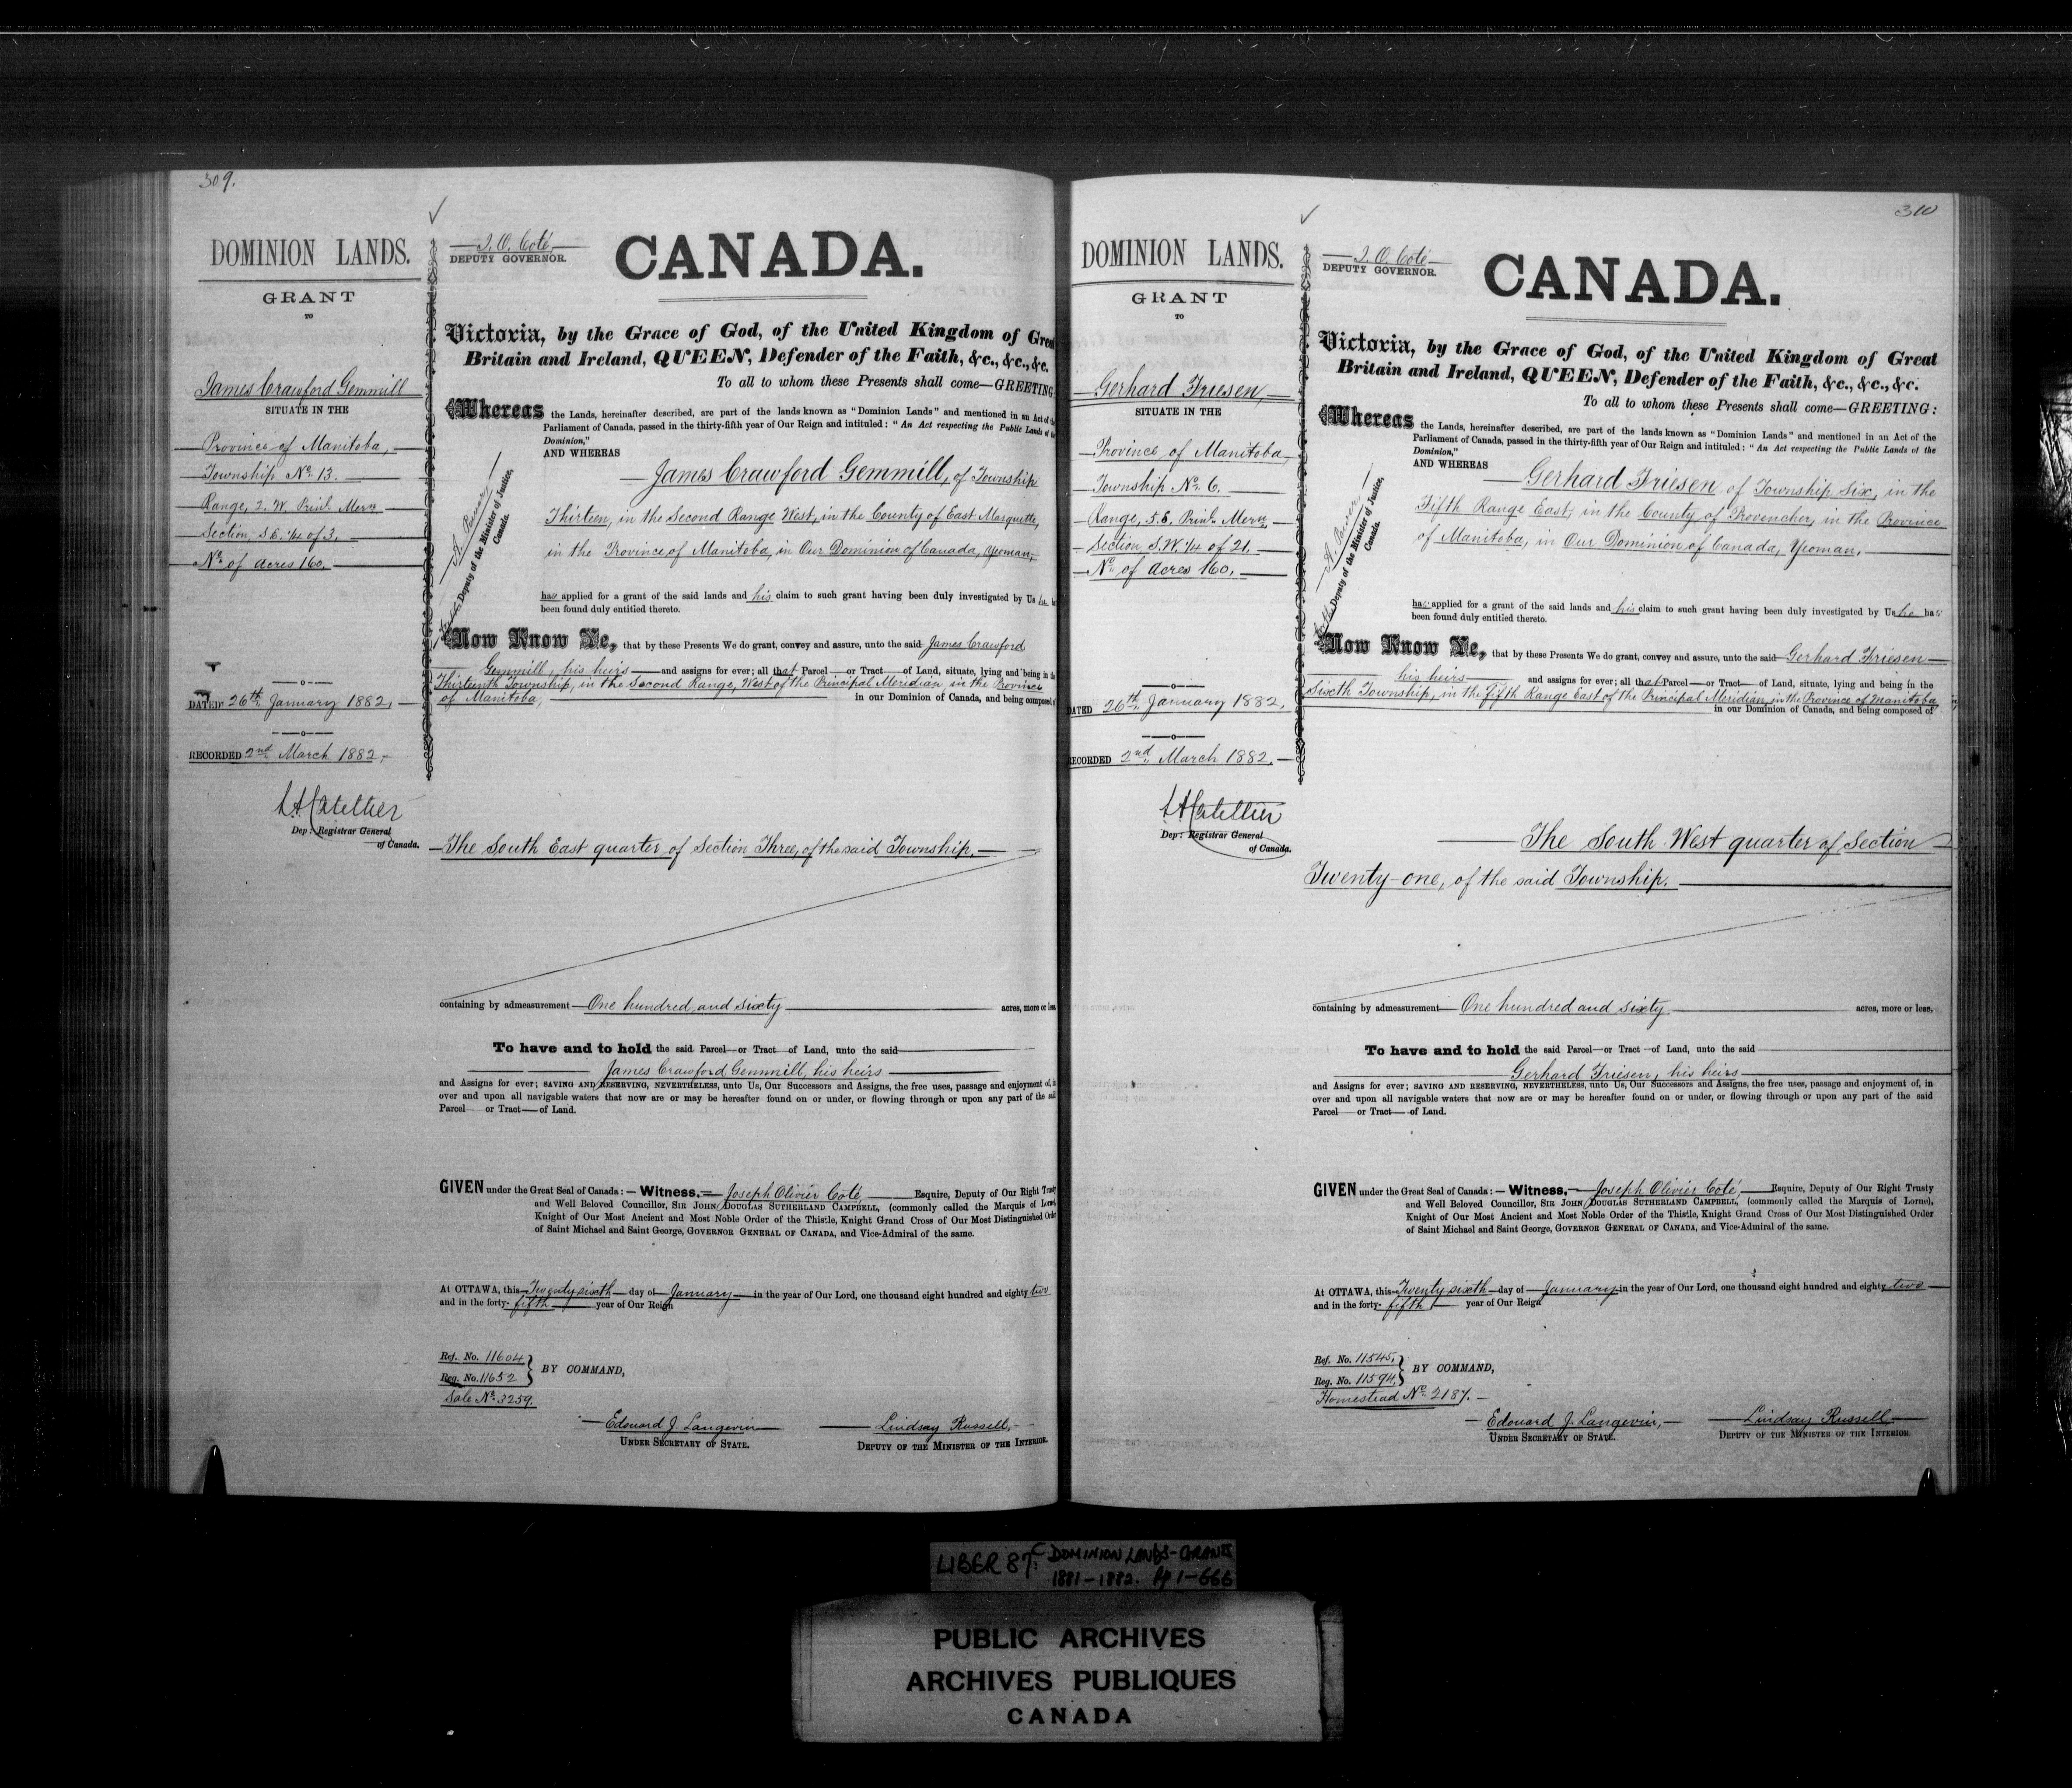 309.
DOMINION LANDS.
GRANT
TO
James Crawford Gemmill
SITUATE IN THE
Province of Manitoba,
Township No. 13.
Range, 2. W. Prinl. Mern
Section, S.E. 1/4 of 3.
No. of acres 160.
DATED 26th January 1882,
RECORDED 2nd March 1882,
Dep: Registrar General
of Canada.
J. O. Coté
DEPUTY GOVERNOR.
CANADA.
Victoria, by the Grace of God, of the United Kingdom of Great
Britain and Ireland, QUEEN, Defender of the Faith, &c., &c., &c.
To all to whom these Presents shall come—GREETING:
Whereas the Lands, hereinafter described, are part of the lands known as "Dominion Lands" and mentioned in an Act of the
Parliament of Canada, passed in the thirty-fifth year of Our Reign and intituled: "An Act respecting the Public Lands of the
Dominion,"
AND WHEREAS
James Crawford Gemmill, of Township
Thirteen, in the Second Range West, in the County of East Marquette,
in the Province of Manitoba, in Our Dominion of Canada, Yeoman,
A. Power
Deputy of the Minister of Justice,
Canada.
has applied for a grant of the said lands and his claim to such grant having been duly investigated by Us
been found duly entitled thereto.
Now Know Ye, that by these Presents We do grant, convey and assure, unto the said James Crawford
Gemmill, his heirs and assigns for ever; all that Parcel or Tract of Land, situate, lying and being in the
Thirteenth Township, in the Second Range, West of the Principal Meridian in the Province
of Manitoba, in our Dominion of Canada, and being composed of
The South East quarter of Section Three, of the said Township.
containing by admeasurement One hundred and sixty acres, more or less.
To have and to hold the said Parcel or Tract of Land, unto the said
James Crawford Gemmill, his heirs
and Assigns for ever; SAVING AND RESERVING, NEVERTHELESS, unto Us, Our Successors and Assigns, the free uses, passage and enjoyment of, in
over and upon all navigable waters that now are or may be hereafter found on or under, or flowing through or upon any part of the said
Parcel or Tract of Land.
GIVEN under the Great Seal of Canada:— Witness, Joseph Olivier Coté, Esquire, Deputy of Our Right Trusty
and Well Beloved Councillor, SIR JOHN DOUGLAS SUTHERLAND CAMPBELL, (commonly called the Marquis of Lorne),
Knight of Our Most Ancient and Most Noble Order of the Thistle, Knight Grand Cross of Our Most Distinguished Order
of Saint Michael and Saint George, GOVERNOR GENERAL OF CANADA, and Vice-Admiral of the same.
At OTTAWA, this Twenty sixth day of January in the year of Our Lord, one thousand eight hundred and eighty two
and in the forty-fifth year of Our Reign
Ref. No. 11604
Reg. No. 11652
BY COMMAND,
Sale No. 3259.
Edouard J. Langevin
UNDER SECRETARY OF STATE.
Lindsay Russell,
DEPUTY OF THE MINISTER OF THE INTERIOR.
310
DOMINION LANDS.
GRANT
TO
Gerhard Friesen,
SITUATE IN THE
Province of Manitoba,
Township No. 6.
Range, 5. E. Prinl. Mern
Section, S.W. 1/4 of 21.
No. of acres 160.
DATED 26th January 1882,
RECORDED 2nd March 1882.
Dep: Registrar General
of Canada.
J. O. Coté
DEPUTY GOVERNOR.
CANADA.
Victoria, by the Grace of God, of the United Kingdom of Great
Britain and Ireland, QUEEN, Defender of the Faith, &c., &c., &c.
To all to whom these Presents shall come—GREETING:
Whereas the Lands, hereinafter described, are part of the lands known as "Dominion Lands" and mentioned in an Act of the
Parliament of Canada, passed in the thirty-fifth year of Our Reign and intituled: "An Act respecting the Public Lands of the
Dominion,"
AND WHEREAS
Gerhard Friesen of Township Six, in the
Fifth Range East, in the County of Provencher, in the Province
of Manitoba, in Our Dominion of Canada, Yeoman.
A. Power
Deputy of the Minister of Justice,
Canada.
has applied for a grant of the said lands and his claim to such grant having been duly investigated by Us he has
been found duly entitled thereto.
Now Know Ye, that by these Presents We do grant, convey and assure, unto the said Gerhard Friesen
his heirs and assigns for ever; all that Parcel or Tract of Land, situate, lying and being in the
Sixth Township, in the fifth Range East of the Principal Meridian, in the Province of Manitoba
in our Dominion of Canada, and being composed of
The South West quarter of Section
Twenty-one, of the said Township.
containing by admeasurement One hundred and sixty acres, more or less.
To have and to hold the said Parcel or Tract of Land, unto the said
Gerhard Friesen, his heirs
and Assigns for ever; SAVING AND RESERVING, NEVERTHELESS, unto Us, Our Successors and Assigns, the free uses, passage and enjoyment of, in
over and upon all navigable waters that now are or may be hereafter found on or under, or flowing through or upon any part of the said
Parcel or Tract of Land.
GIVEN under the Great Seal of Canada:— Witness, Joseph Olivier Coté, Esquire, Deputy of Our Right Trusty
and Well Beloved Councillor, SIR JOHN DOUGLAS SUTHERLAND CAMPBELL, (commonly called the Marquis of Lorne),
Knight of Our Most Ancient and Most Noble Order of the Thistle, Knight Grand Cross of Our Most Distinguished Order
of Saint Michael and Saint George, GOVERNOR GENERAL OF CANADA, and Vice-Admiral of the same.
At OTTAWA, this Twenty sixth day of January in the year of Our Lord, one thousand eight hundred and eighty two
and in the forty-fifth year of Our Reign
Ref. No. 11545.
Reg. No. 11594.
BY COMMAND,
Homestead No. 2187.
Edouard J. Langevin,
UNDER SECRETARY OF STATE.
Lindsay Russell
DEPUTY OF THE MINISTER OF THE INTERIOR.
LIBER 87C: DOMINION LANDS-GRANTS
1881-1882. Pp 1-666
PUBLIC ARCHIVES
ARCHIVES PUBLIQUES
CANADA